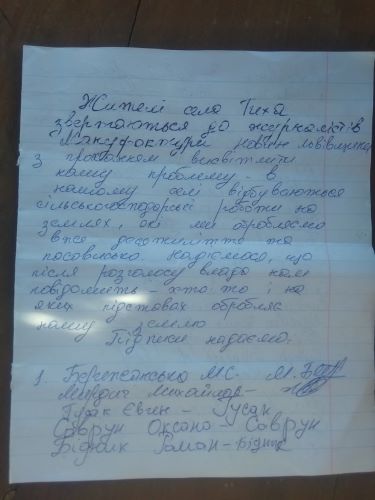 Жителі села Тиха
звертаються до журналістів
Мануфактури новин Львівщина
з проханням висвітлити
нашу проблему - в
нашому селі відбуваються
сільськогосподарські роботи на
землях, які ми обробляємо
вже десятиліття та
пасовиська. Надіємося, що
після розголосу влада нам
повідомить - хто то і на
яких підставах обробляє
нашу землю
Підписи надаємо.
1. М.С. М.
Михайло -
Гусак Євген - Гусак
Саврун Оксана - Саврун
Бідник Роман - Бідник